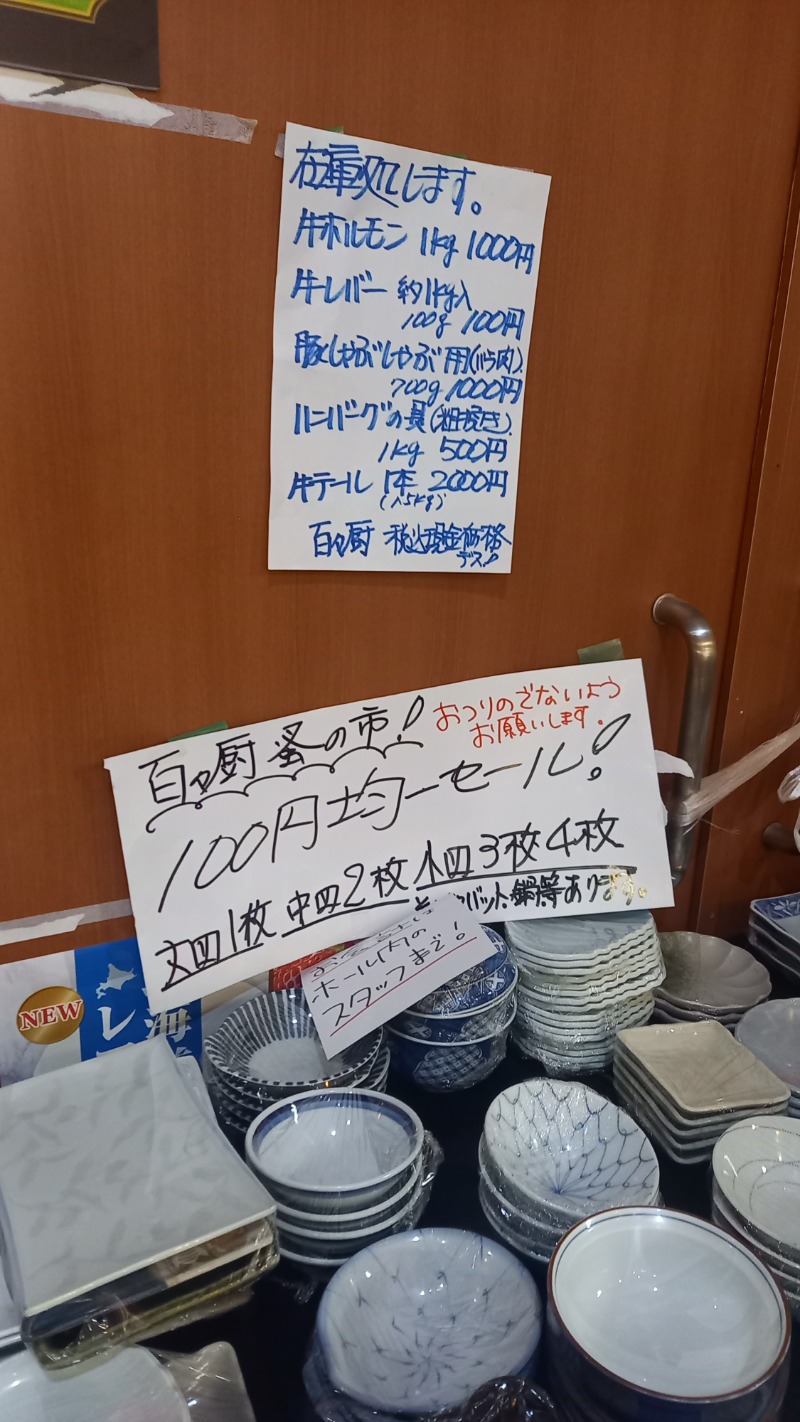 在庫処します。
牛ホルモン 1kg 1000円
牛レバー 約1kg入
100g 100円
豚しゃぶしゃぶ用(バラ肉)
700g 1000円
ハンバーグの具(粗挽き)
1kg 500円
牛テール 1本 2000円
(1.5kg)
百々厨 税込現金価格
デス!
百々厨 蚤の市!
おつりのでないよう
お願いします。
100円均一セール!
大皿1枚 中皿2枚 小皿3枚4枚
バット鍋等あります。
ホール内の
スタッフまで!
NEW
海
レ